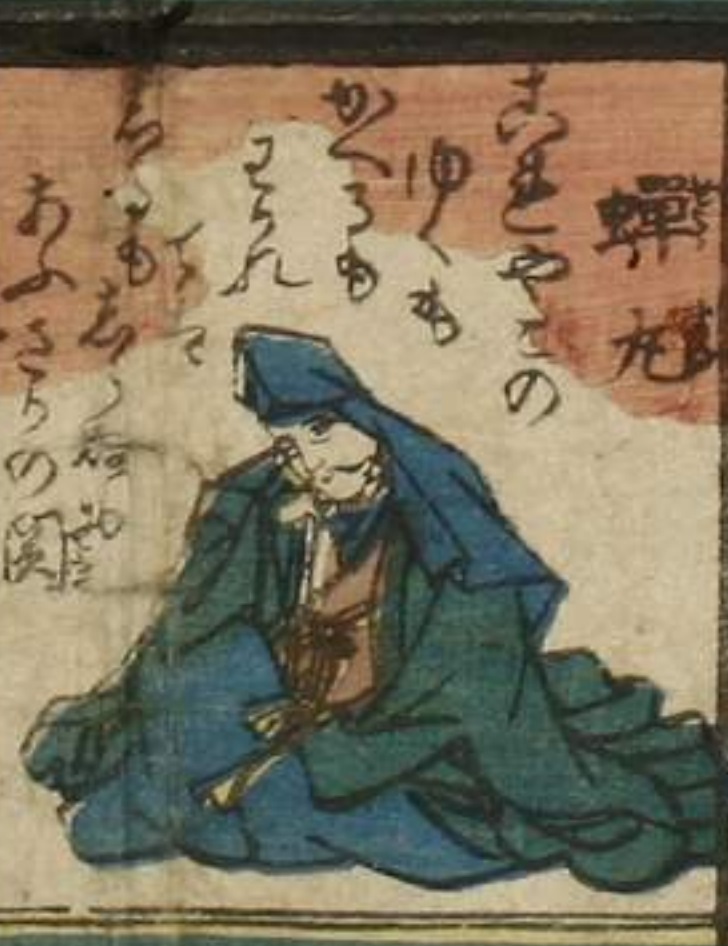 蟬丸
これやこの
ゆくも
かへるも
わかれ
ては
しるもしらぬも
あふさかの関